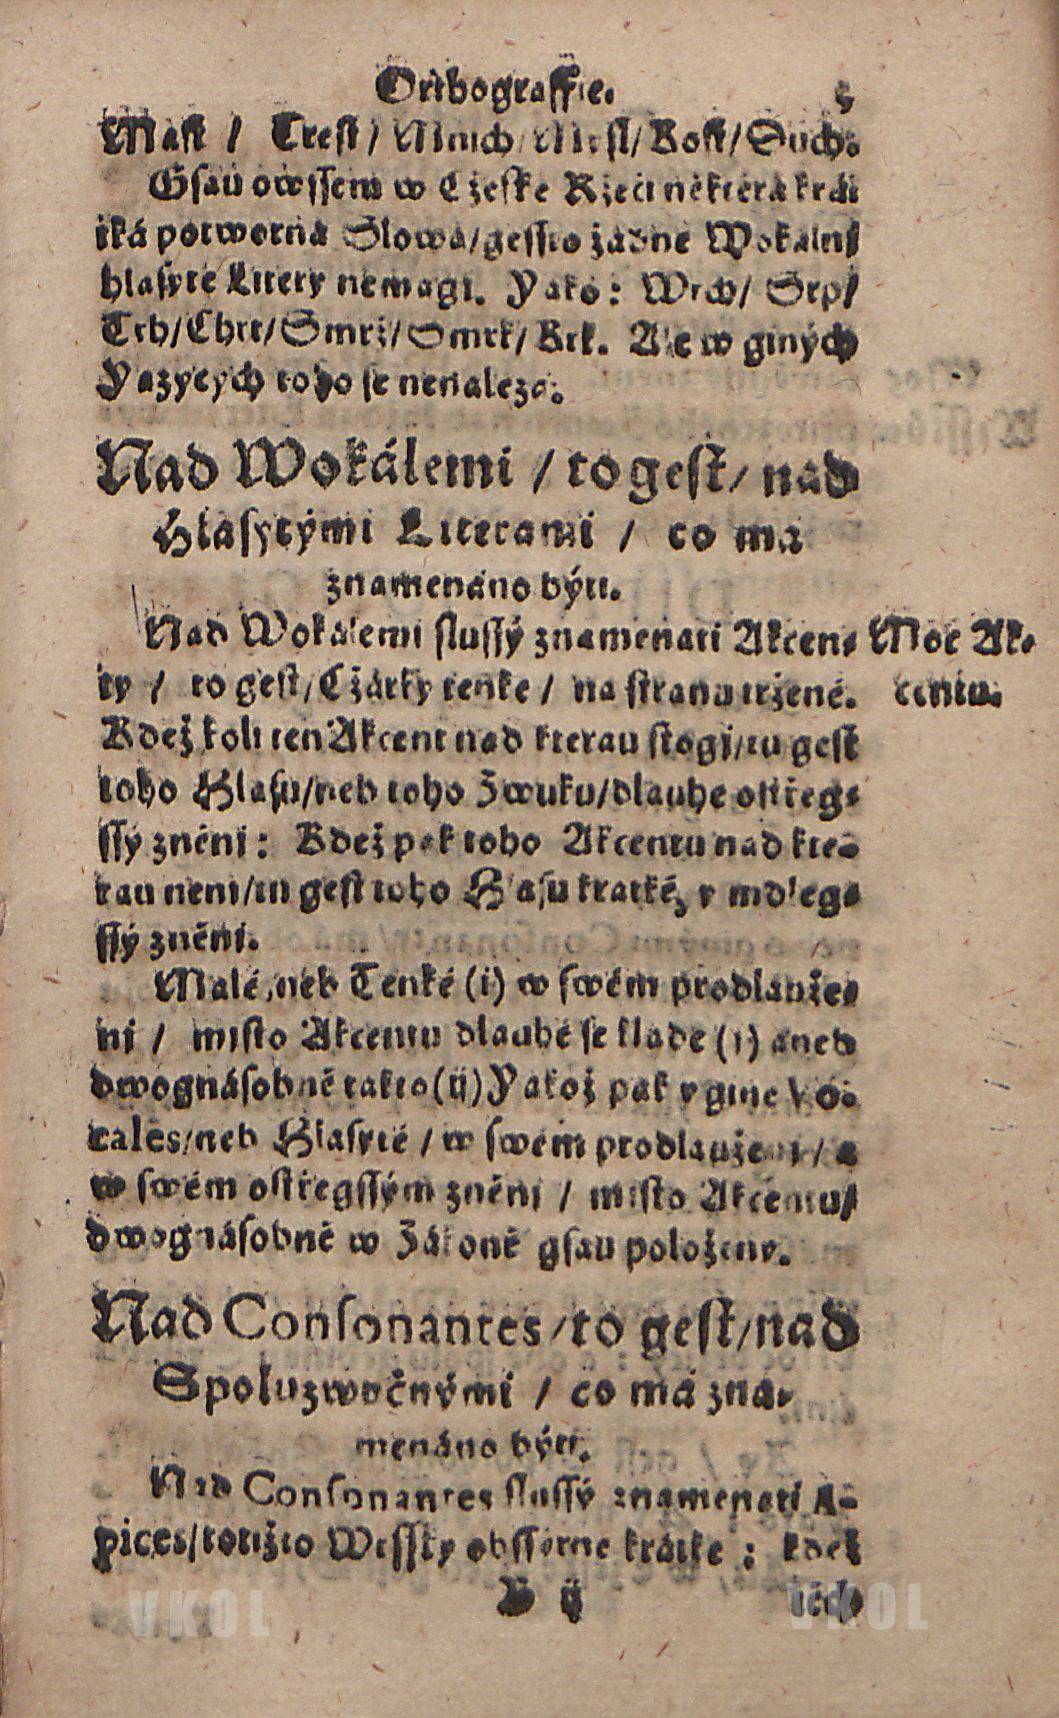 Orthograffie. 5
Mast / Trest / Mnich / Mysl / Kost / Duch.
Gsau owssem w Cžeske Rzeči některá krát-
iká potworná Slowa / gessto žádné Wokálnj
hlasyté Litery nemagj. Yako: Wrch / Srp /
Trh / Chrt / Smrž / Smrk / Brk. Ale w giných
Yazycých toho se nenaleza.
Nad Wokálemi / to gest / nad
Hlasytými Literami / co má
znamenáno býti.
Nad Wokálemi slussý znamenati Akcen-
ty / to gest / Cžárky tenké / na stranu tržené.
Kdež koli ten Akcent nad kterau stogj / tu gest
toho Hlasu / neb toho Zwuku / dlauhé ostřeg-
ssý zněnj: Kdež pak toho Akcentu nad kte-
rau nenj / tu gest toho Hlasu kratké, y mdleg-
ssý zněnj.
Malé, neb Tenké (i) w swém prodlauže-
nj / mjsto Akcentu dlauhé se klade (j) aneb
dwognásobně takto (ij) Yakož pak y giné Vo-
cales / neb Hlasyté / w swém prodlauženj / a
w swém ostřegssým zněnj / mjsto Akcentu /
dwognásobně w Zákoně gsau položeny.
Nad Consonantes / to gest / nad
Spoluzwočnými / co má zna-
menáno býti.
Nad Consonantes slussý znamenati A-
pices / totižto Wrssky obssérné krátke: kdež
B ij
Moc Ak-
centu.
VKOL
VKOL